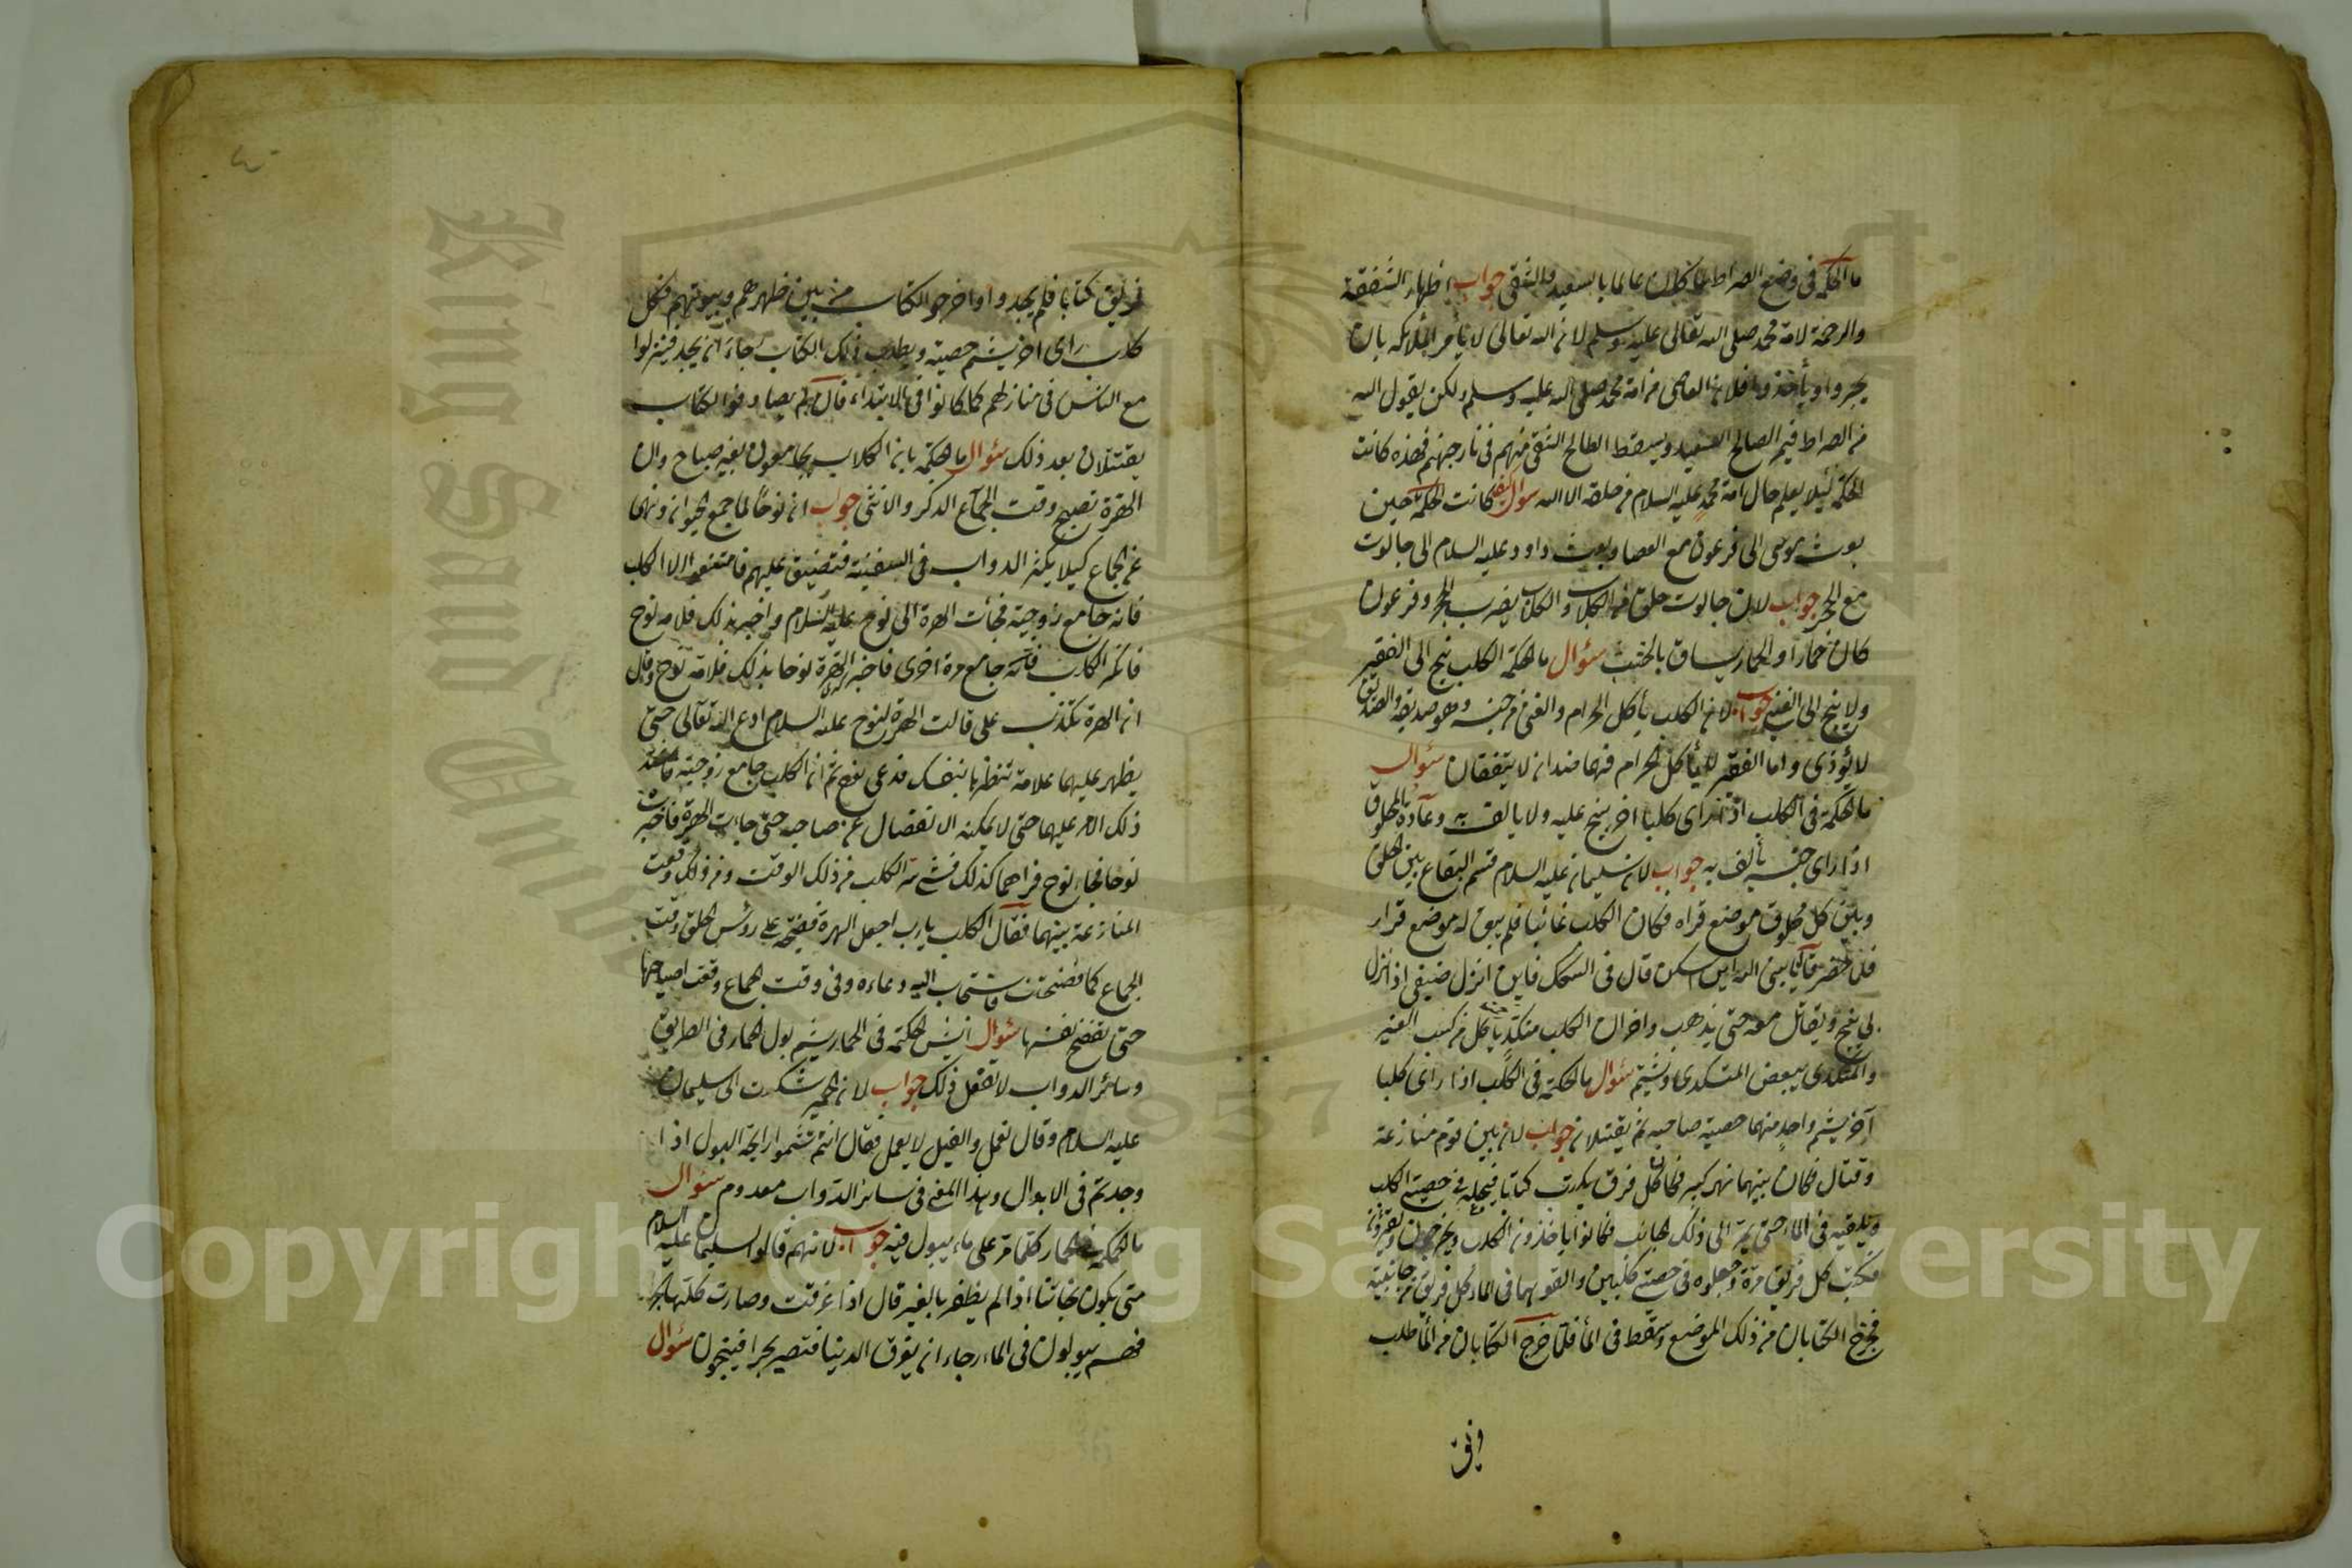 ما الحكمة فى وضع الصراط كان عالما بالسعيد والشقى جواب اظهار الشفقة
والرحمة لامة محمد صلى الله تعالى عليه وسلم لان الله تعالى لا يأمر الملائكة بان
يجروا ويأخذوا فلان العاصى من امة محمد صلى الله عليه وسلم ولكن يقول الله
من الصراط فيمر الصالح السعيد ويسقط الطالح الشقى منهم فى نار جهنم فهذه كانت
الحكمة لئيلا يعلم حال امة محمد عليه السلام من خلقه الا الله سؤال كانت الحكمة حين
بعث موسى الى فرعون مع العصا وبعث داود عليه السلام الى جالوت
مع الحجر جواب لان جالوت خلق من الكلاب والكلاب يضرب بالحجر وفرعون
كان خمارا والحمار يساق بالخشب سؤال ما الحكمة الكلب ينبح الى الفقير
ولا ينبح الى الغنى جواب لان الكلب يأكل الحرام والغنى من جنسه وهو صديقه والصديق
لا يؤذى واما الفقير لا يأكل الحرام فهما ضدان لا يتفقان سؤال
ما الحكمة فى الكلب اذا رأى كلبا اخر ينبح عليه ولا يالف به وعادة المخلوق
اذا رأى جنسه يألف به جواب لان سليمان عليه السلام قسم البقاع بين الخلق
وبين كل مخلوق موضع قراه فكان الكلب غائبا فلم يبق له موضع قرار
فلما حضر قال يا نبى الله اين اسكن قال فى السكك فاين انزل ضيفى اذا نزل
لى ينبح ويقاتل معه حتى يذهب واخوان الكلب متكدى يأكل من كسب الغير
والمتكدى يبغض المتكدى ويشتم سؤال ما الحكمة فى الكلب اذا رأى كلبا
آخر يشم واحد منهما خصية صاحبه ثم يقتتلان جواب لان بين قوم منازعة
وقتال فكان بينهما نهر كبير فكان كل فرق يكتب كتابا فيجعله فى خصيتى الكلب
ويلقيه فى الماء حتى يمر الى ذلك الجانب فكانوا يأخذون الكلاب ويخرجون ويقرؤن
فكتب كل فريق مرة وجعلوه فى خصيتى كلبين والقوهما فى الماء كل فريق من جانبيه
فخرج الكتابان من ذلك الموضع وسقط فى الماء فلما خرج الكتابان من الماء طلب
فريق
فريق كتابا فلم يجدوا واخرجوا الكتاب من بين ظهرهم وبيوتهم فكل
كلب رأى اخر يشم خصيته ويطلب ذلك الكتاب رجاء ان يجد فينزلوا
مع الناس فى منازلهم كما كانوا فى الابتداء قال لم يصادفوا الكتاب
يقتتلان بعد ذلك سؤال ما الحكمة بان الكلاب يجامعون بغير صباح وان
الهرة تصيح وقت الجماع الذكر والانثى جواب ان نوحا لما جمع الحيوان ونهى
عن الجماع كيلا يكثر الدواب فى السفينة فتضيق عليهم فامتنعوا الا الكلب
فانه جامع زوجته فجائت الهرة الى نوح عليه السلام واخبره بذلك فلامه نوح
فانكر الكلب فانه جامع مرة اخرى فاخبر الهرة نوحا بذلك فلامه نوح وقال
ان الهرة يكذب على قالت الهرة لنوح عليه السلام ادع الله تعالى حتى
يظهر عليهما علامة تنظرها بنفسك فدعى نوح ثم ان الكلب جامع زوجته فانعقد
ذلك الامر عليهما حتى لا يمكنه الانفصال عن صاحبه حتى جاءت الهرة فاخبرت
نوحا فجاء نوح فراهما كذلك ففشى سر الكلب من ذلك الوقت ومن ذلك وقعت
المنازعة بينهما فقال الكلب يارب اجعل الهرة فضيحة على رؤس الخلق وقت
الجماع كما فضحتنى فاستجاب اليه دعاءه وفى وقت الجماع وقعت صياحها
حتى تفضح نفسها سؤال ايش الحكمة فى الحمار يشم بول الحمار فى الطريق
وسائر الدواب لا تفعل ذلك جواب لان الحمير شكوت الى سليمان
عليه السلام وقال نعمل والفيل لا يعمل فقال انتم تشموا رايحة البول اذا
وجدتم فى الابوال وهذا المعنى فى سائر الدواب معدوم سؤال
ما الحكمة فى الحمار كلما مر على ماء يبول فيه جواب لانهم قالوا سليمان عليه السلام
متى يكون نجاتنا اذا لم يظفر بالغير قال اذا غرقت وصارت كلها بحرا
فهم يبولون فى الماء رجاء ان يغرق الدينا فتصير بحرا فينجون سؤال
Copyright © King Saud University
King Saud University
1957